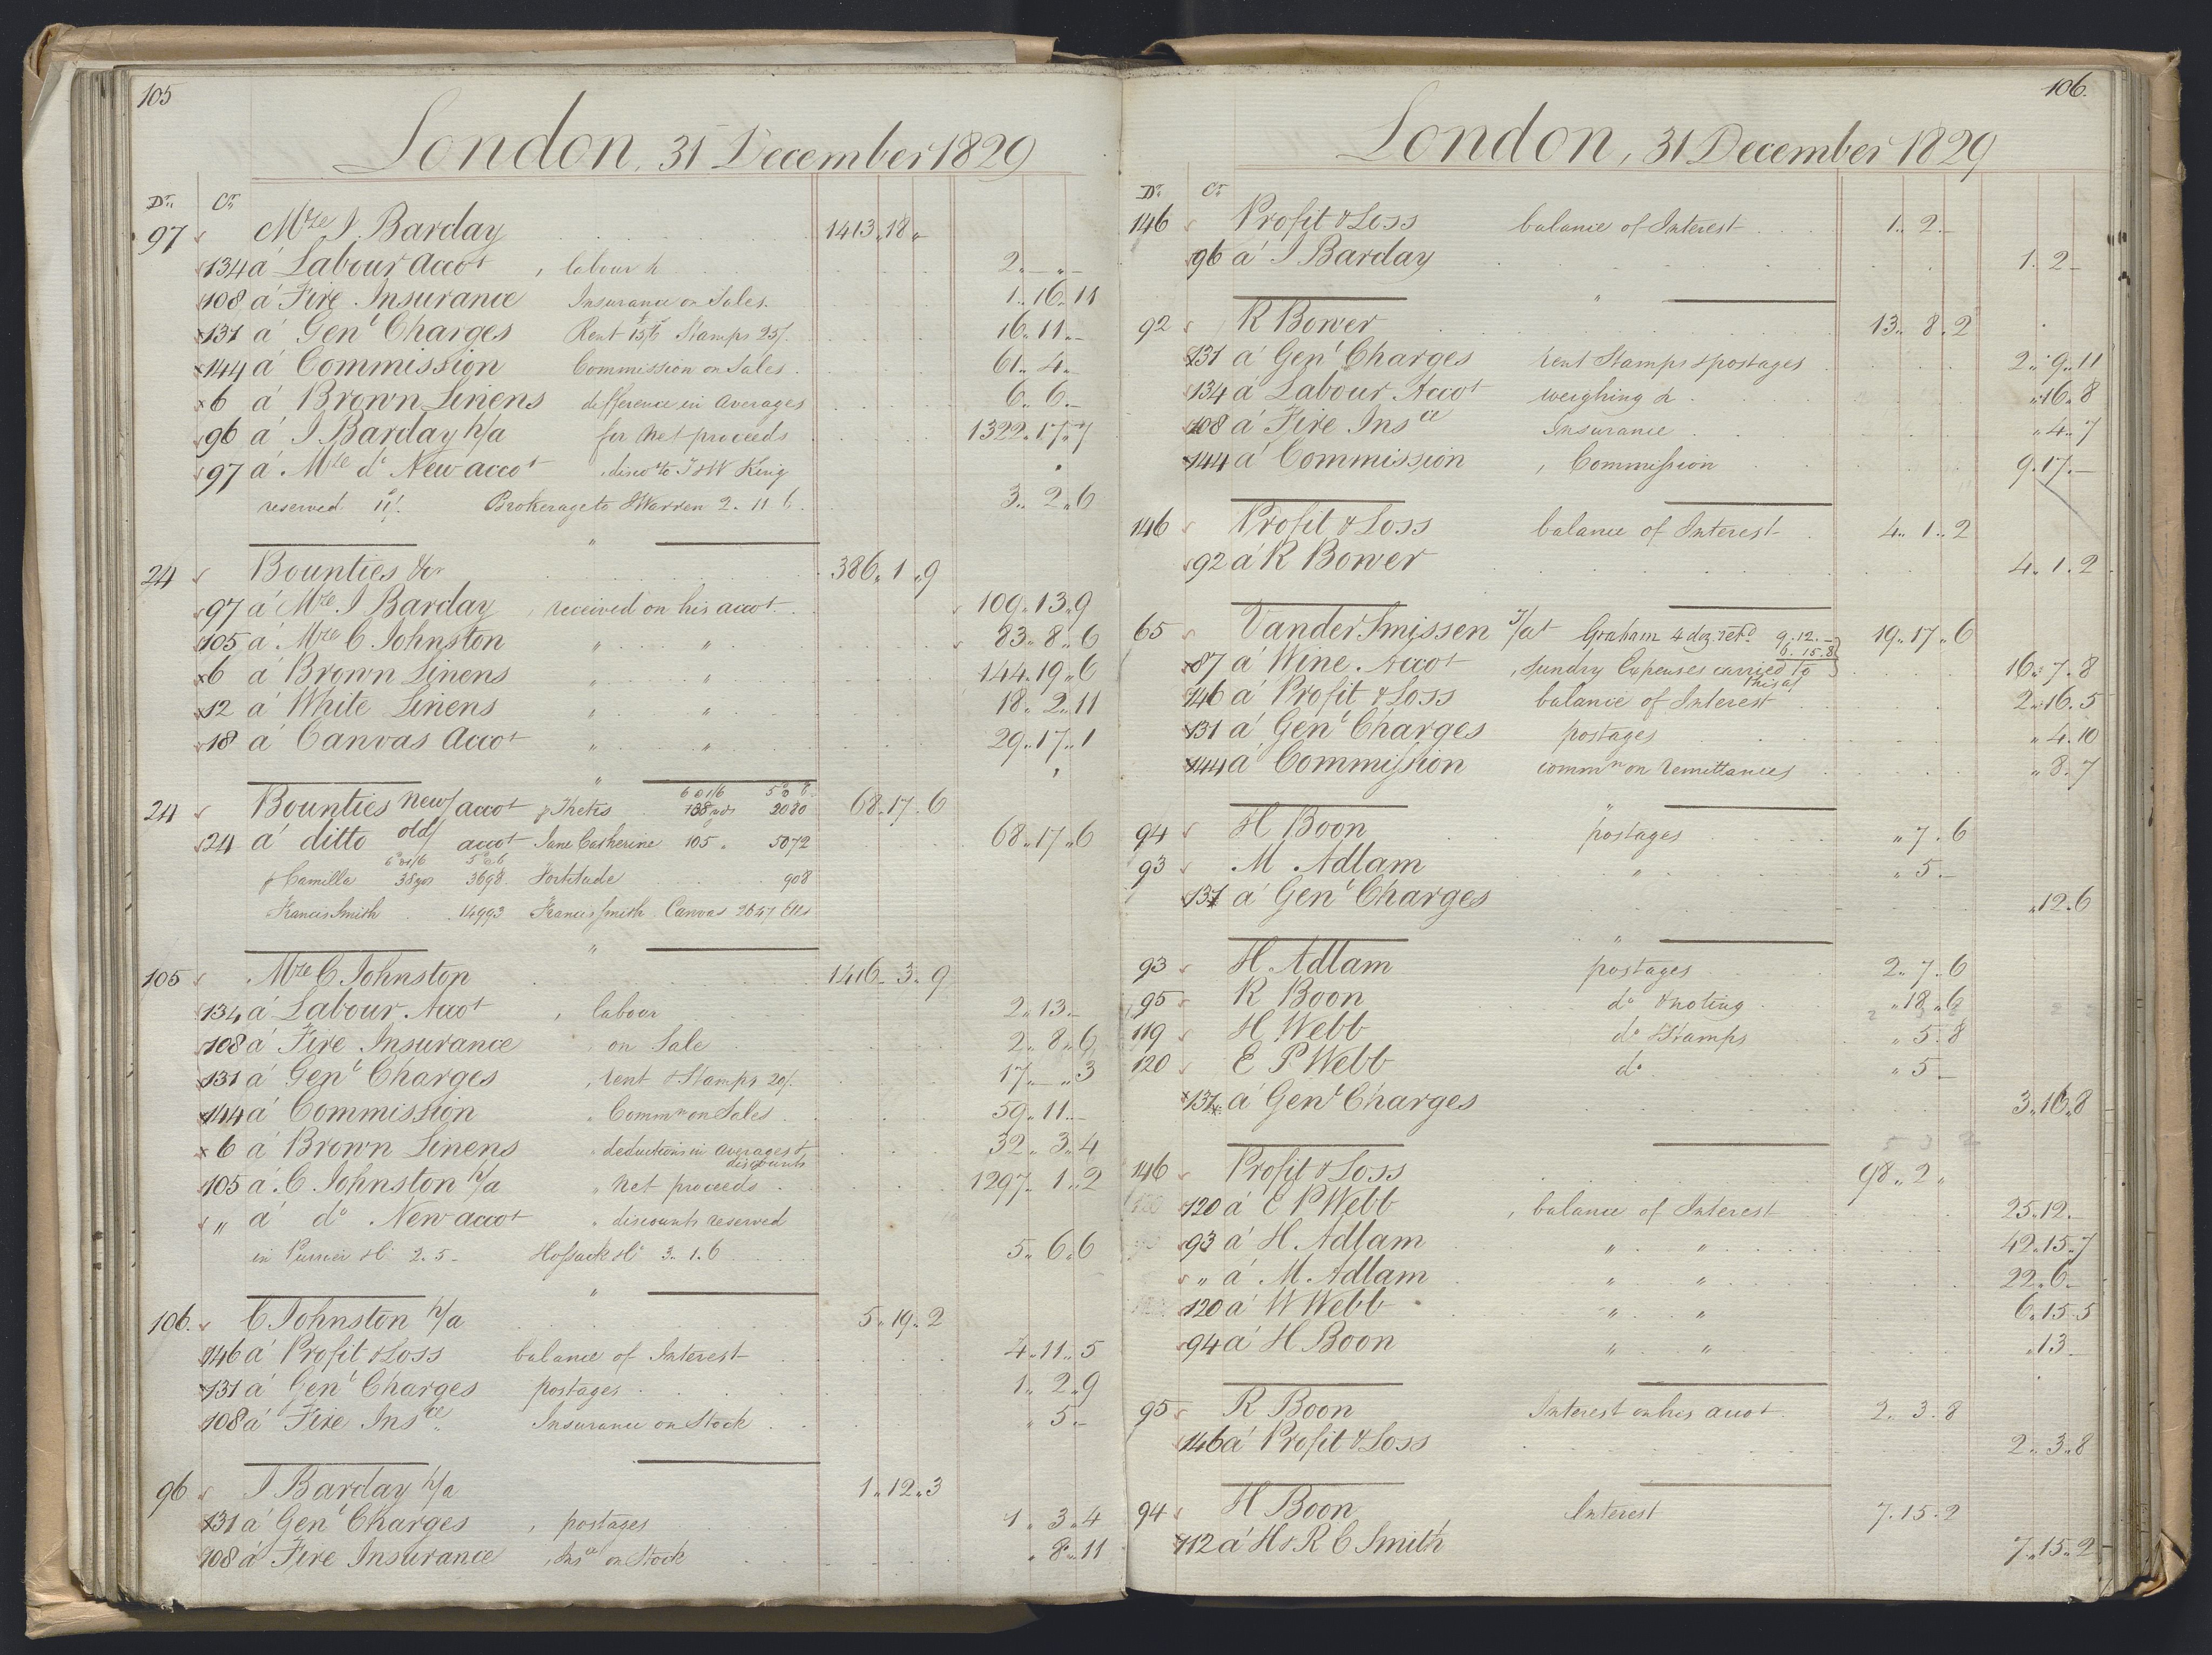 105
London, 31 December 1829
Dr. Cr.
97 Mze J. Barclay 1413,,18,,
134 á Labour Accot, labour & 2,,—,,—
108 á Fire Insurance Insurance on Sales. 1,,16,,11
131 á Genl Charges Rent Stamps 25/. 16,,11,,—
144 á Commission Commission on Sales. 61,,4,,—
6 á Brown Linens difference in Averages 6,,6,,—
96 á J Barclay h/a for Net proceeds 1322,,17,,7
97 á Mze do New accot, disco to J & W King
reserved 11/. Brokerage to J Warren 2. 11 6. 3,,2,,6
24 Bounties &c 386,,1,,9
97 á Mze J Barclay, received on his accot. 109,,13,,9
105 á Mze C Johnston ,, ,, 83,,8,,6
6 á Brown Linens ,, ,, 144,,19,,6
12 á White Linens ,, ,, 18,,2,,11
18 á Canvas Accot ,, ,, 29,,17,,1
6 a 1/6 5 a 6
24 Bounties new/ accot p Thetis 138 yds 2080 68,,17,,6
24 á ditto old/ accot Jane Catherine 105 ,, 5072 68,,17,,6
6 a 1/6 5 a 6
p Camilla 38 yds 3698 Fortitude 908
Francis Smith 14993 Francis Smith Canvas 2647 Ells
105 Mze C Johnston 1416,,3,,9
134 á Labour Accot, labour 2,,13,,—
108 á Fire Insurance, on Sale 2,,8,,6
131 á Genl Charges, rent & Stamps 20/. 17,,—,,3
144 á Commission, Commn on Sales. 59,,11,,—
6 á Brown Linens, deductions in averages &
discounts 32,,3,,4
105 á C Johnston h/a ,, Net proceeds 1297,,1,,2
,, á do New accot, discounts reserved
in 2. 5 — Hossack & Co 3. 1. 6 5,,6,,6
106. C Johnston h/a 5,,19,,2
146 á Profit & Loss balance of Interest 4,,11,,5
131 á Genl Charges postages 1,,2,,9
108 á Fire Insce Insurance on Stock ,,5,,—
96 J Barclay h/a 1,,12,,3
131 á Genl Charges, postages 1,,3,,4
108 á Fire Insurance, Insce on Stock ,,8,,11
106.
London, 31 December 1829
Dr. Cr.
146 Profit & Loss balance of Interest 1,,2,,—
96 á J Barclay 1,,2—
92 R Bower 13,,8,,2
131 á Genl Charges rent Stamps & postages 2,,9,,11
134 á Labour Accot weighing & ,,16,,8
108 á Fire Insce Insurance ,,4,,7
144 á Commission, Commission 9,,17,,—
146 Profit & Loss balance of Interest 4,,1,,2
92 á R Bower 4,,1,,2
65 VanderSmissen J/at Graham 4 doz retd 9.12.— 19,,17,,6
6.15.8
87 á Wine Accot, Sundry Expenses carried to
this at 16,,7,,8
146 á Profit & Loss balance of Interest 2,,16,,5
131 á Genl Charges postages ,,4,,10
144 á Commission commn on remittances ,,8,,7
94 H Boon postages ,,7,,6
93 M Adlam ,, ,,5,,—
131 á Genl Charges ,,12,,6
93 H Adlam postages 2,,7,,6
95 R Boon do & noting ,,18,,6
119 H Webb do & Stamps ,,5,,8
120 E P Webb do ,,5—
131 á Genl Charges 3,,16,,8
146 Profit & Loss 98,,2,,
120 á E P Webb, balance of Interest 25,,12,,—
93 á H Adlam ,, ,, 42,,15,,7
,, á M. Adlam ,, ,, 22,,6—
120 á W Webb ,, ,, 6,,15,,5
94 á H Boon ,, ,, ,,13—
95 R Boon Interest on his accot 2,,3,,8
146 á Profit & Loss 2,,3,,8
94 H Boon Interest 7,,15,,2
112 á H & R C Smith 7,,15,,2